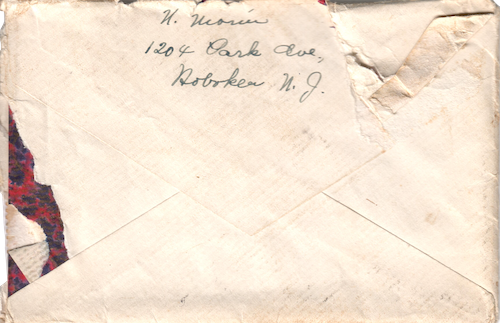 N. Morin
1204 Park Ave,
Hoboken, N. J.